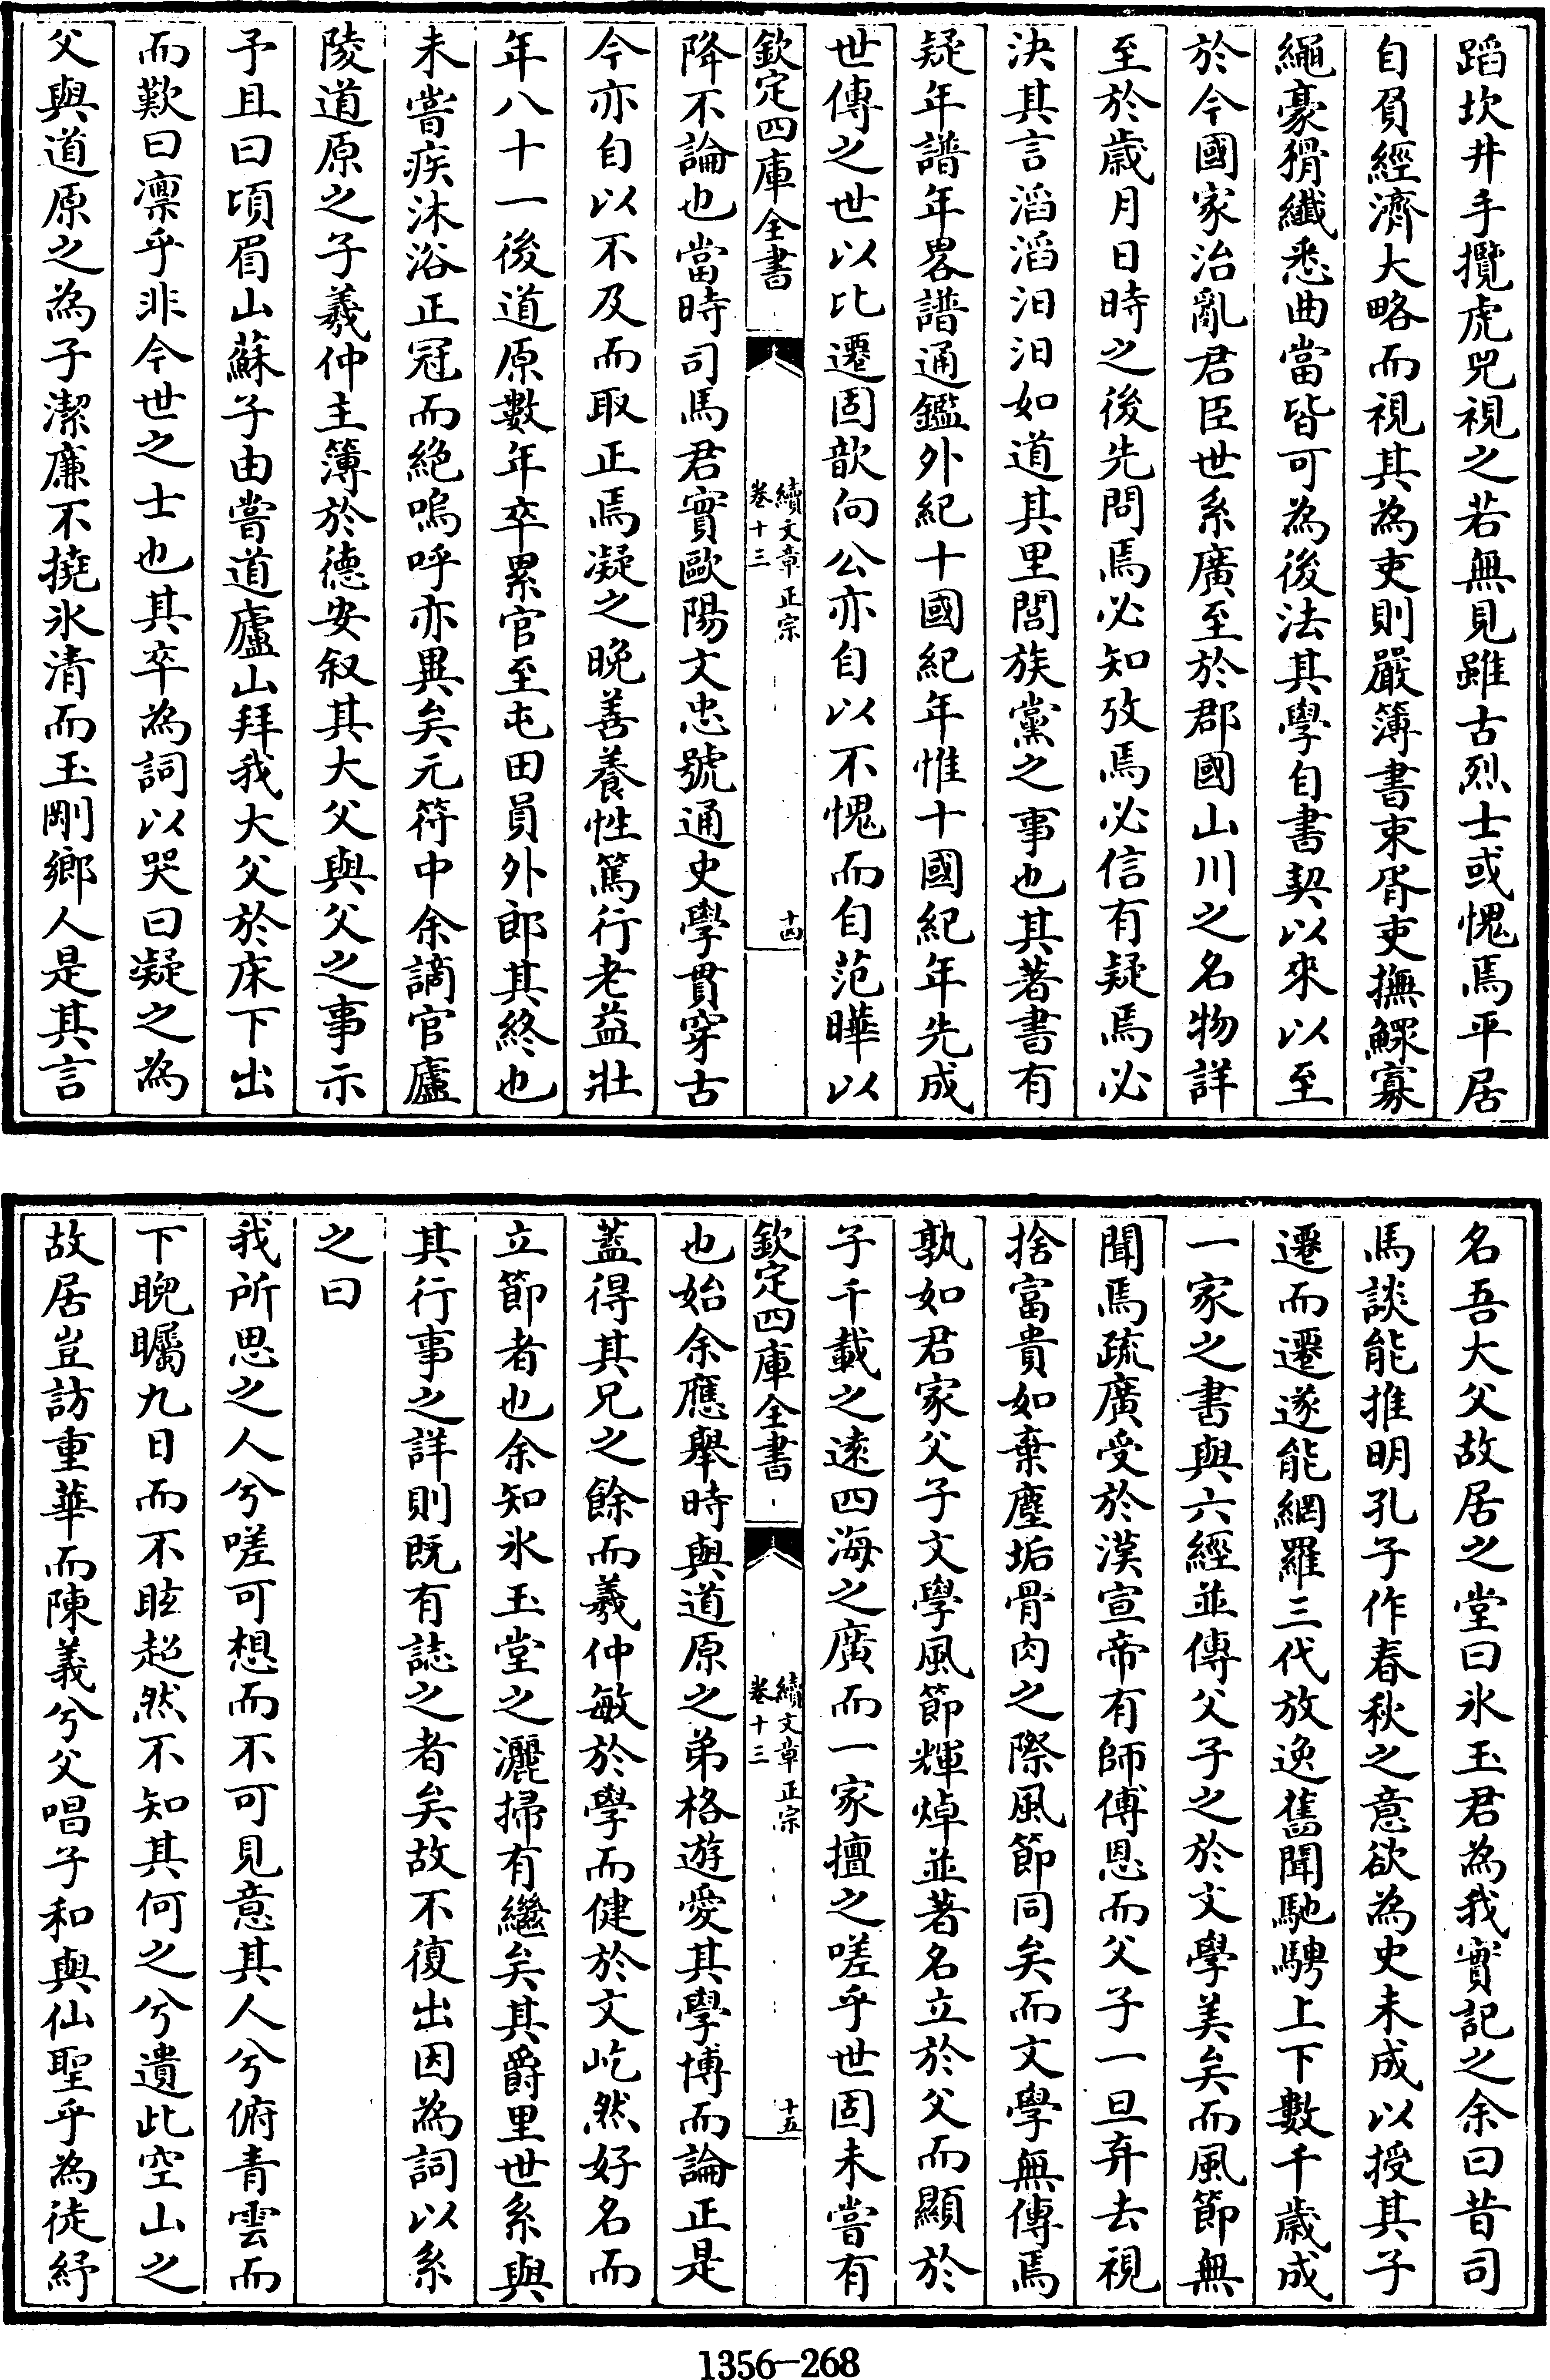 蹈坎井手攬虎兕視之若無見雖古烈士或愧焉平居
自負經濟大略而視其為吏則嚴簿書束胥吏撫鰥寡
繩豪猾纖悉曲當皆可為後法其學自書契以來以至
於今國家治亂君臣世系廣至於郡國山川之名物詳
至於歲月日時之後先問焉必知攷焉必信有疑焉必
決其言滔滔汨汨如道其里閭族黨之事也其著書有
疑年譜年畧譜通鑑外紀十國紀年惟十國紀年先成
世傳之世以比遷固歆向公亦自以不愧而自范曄以
欽定四庫全書
續文章正宗
卷十三
十四
降不論也當時司馬君實歐陽文忠號通史學貫穿古
今亦自以不及而取正焉凝之晚善養性篤行老益壯
年八十一後道原數年卒累官至屯田員外郎其終也
未嘗疾沐浴正冠而絕嗚呼亦異矣元符中余謫官廬
陵道原之子羲仲主簿於德安叙其大父與父之事示
予且曰頃眉山蘇子由嘗道廬山拜我大父於床下出
而歎曰凜乎非今世之士也其卒為詞以哭曰凝之為
父與道原之為子潔廉不撓氷清而玉剛鄉人是其言
名吾大父故居之堂曰氷玉君為我實記之余曰昔司
馬談能推明孔子作春秋之意欲為史未成以授其子
遷而遷遂能網羅三代放逸舊聞馳騁上下數千歲成
一家之書與六經並傳父子之於文學美矣而風節無
聞焉疏廣受於漢宣帝有師傅恩而父子一旦弃去視
捨富貴如棄塵垢骨肉之際風節同矣而文學無傳焉
孰如君家父子文學風節輝焯並著名立於父而顯於
子千載之逺四海之廣而一家擅之嗟乎世固未嘗有
欽定四庫全書
續文章正宗
卷十三
十五
也始余應舉時與道原之弟格遊愛其學博而論正是
蓋得其兄之餘而羲仲敏於學而健於文屹然好名而
立節者也余知氷玉堂之灑掃有繼矣其爵里世系與
其行事之詳則既有誌之者矣故不復出因為詞以系
之曰
我所思之人兮嗟可想而不可見意其人兮俯青雲而
下睨矚九日而不眩超然不知其何之兮遺此空山之
故居豈訪重華而陳義兮父唱子和與仙聖乎為徒紓
1356-268